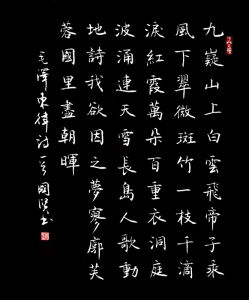 九嶷山上白雲飛帝子乘
風下翠微斑竹一枝千滴
淚紅霞萬朵百重衣洞庭
波涌連天雪長島人歌動
地詩我欲因之夢寥廓芙
蓉國里盡朝暉
毛澤東律詩一首